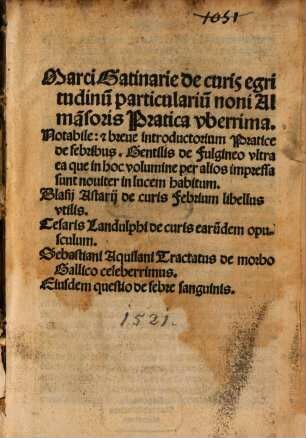 1051
Marci Gatinarie de curis egri
tudinũ particulariũ noni Al
mãsoris Pratica vberrima.
Notabile: ⁊ breue introductorium Pratice
de febribus. Gentilis de Fulgineo vltra
ea que in hoc volumine per alios impressa
sunt nouiter in lucem habitum.
Blasij Astarij de curis Febrium libellus
vtilis.
Cesaris Landulphi de curis earũdem opu-
sculum.
Sebastiani Aquilani Tractatus de morbo
Gallico celeberrimus.
Eiusdem questio de febre sanguinis.
1521.